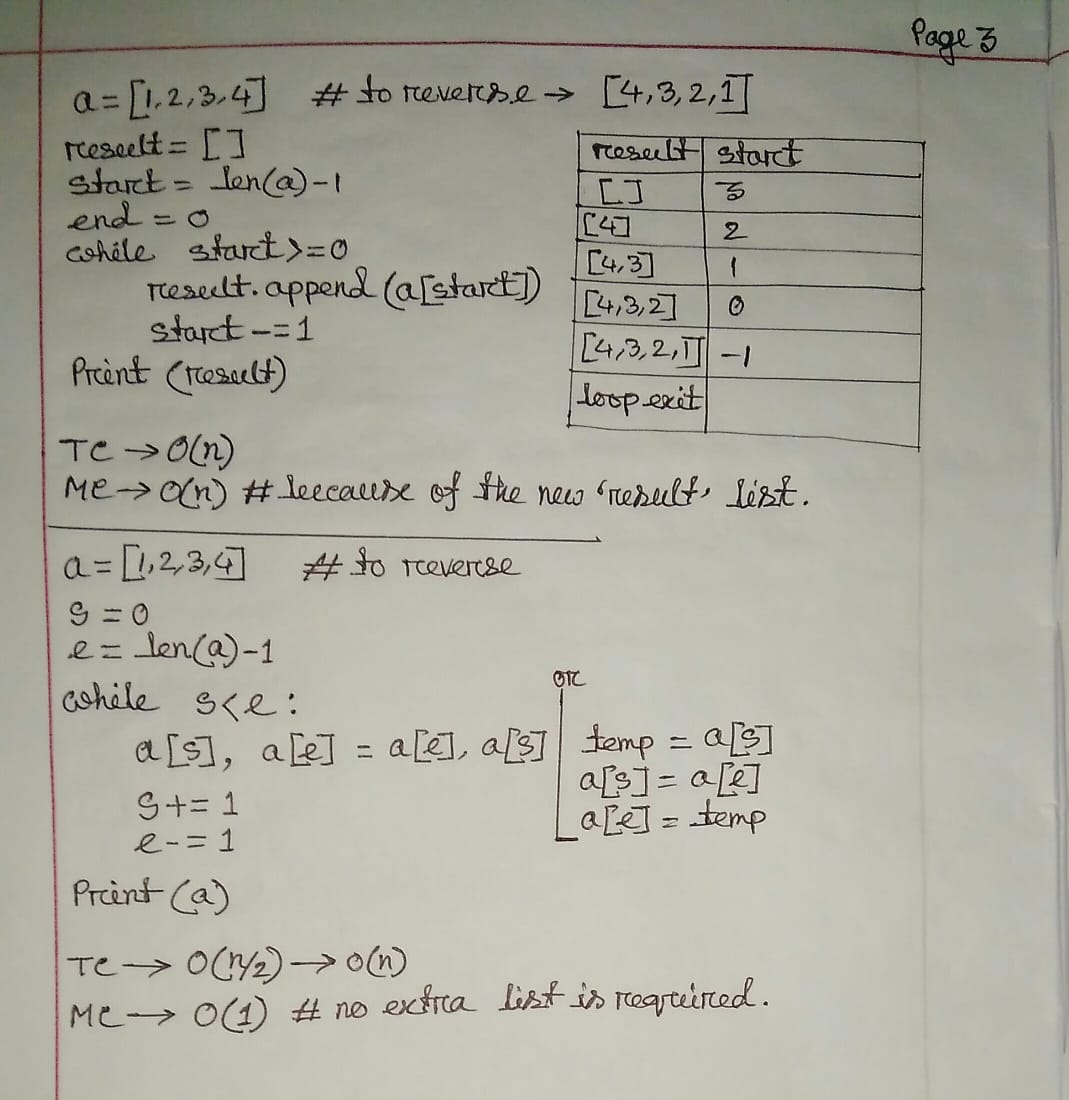 Page 3
a = [1,2,3,4] # to reverse → [4,3,2,1]
result = []
start = len(a)-1
end = 0
while start>=0
result.append(a[start])
start -= 1
Print (result)
result start
[] 3
[4] 2
[4,3] 1
[4,3,2] 0
[4,3,2,1] -1
loop exit
TC → O(n)
MC → O(n) # because of the new 'result' list.
a = [1,2,3,4] # to reverse
s = 0
e = len(a)-1
while s<e:
a[s], a[e] = a[e], a[s]
s += 1
e -= 1
or
temp = a[s]
a[s] = a[e]
a[e] = temp
Print (a)
TC → O(n/2) → O(n)
MC → O(1) # no extra list is required.